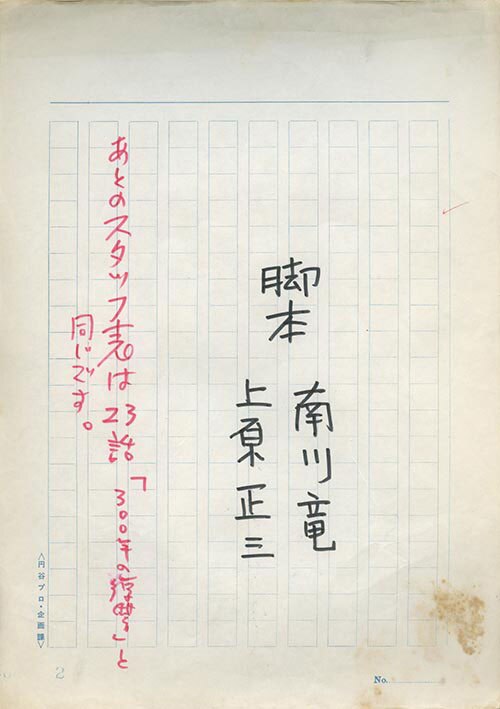 脚本
南川竜
上原正三
あとのスタッフ表は23話「300年の復讐」と
同じです。
〈円谷プロ・企画課〉
2
No.